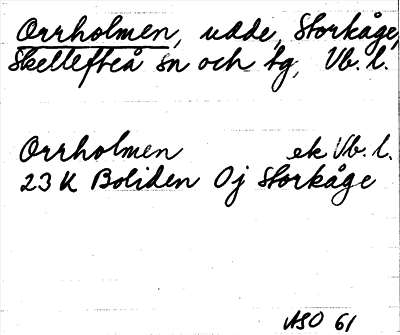 Orrholmen, udde, Storkåge,
Skellefteå sn och tg, Vb. l.
Orrholmen ek Vb. l.
23 K Boliden Oj Storkåge
ASO 61